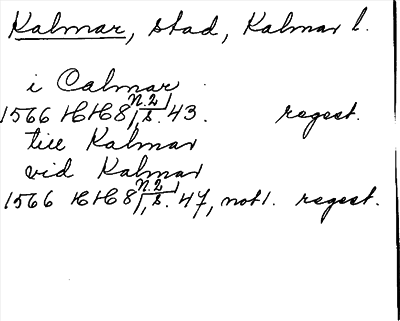 Kalmar, stad, Kalmar l.
i Calmar
1566 HH 8 N.2, s. 43. regest.
till Kalmar
vid Kalmar
1566 HH 8 N.2, s. 47, not 1. regest.